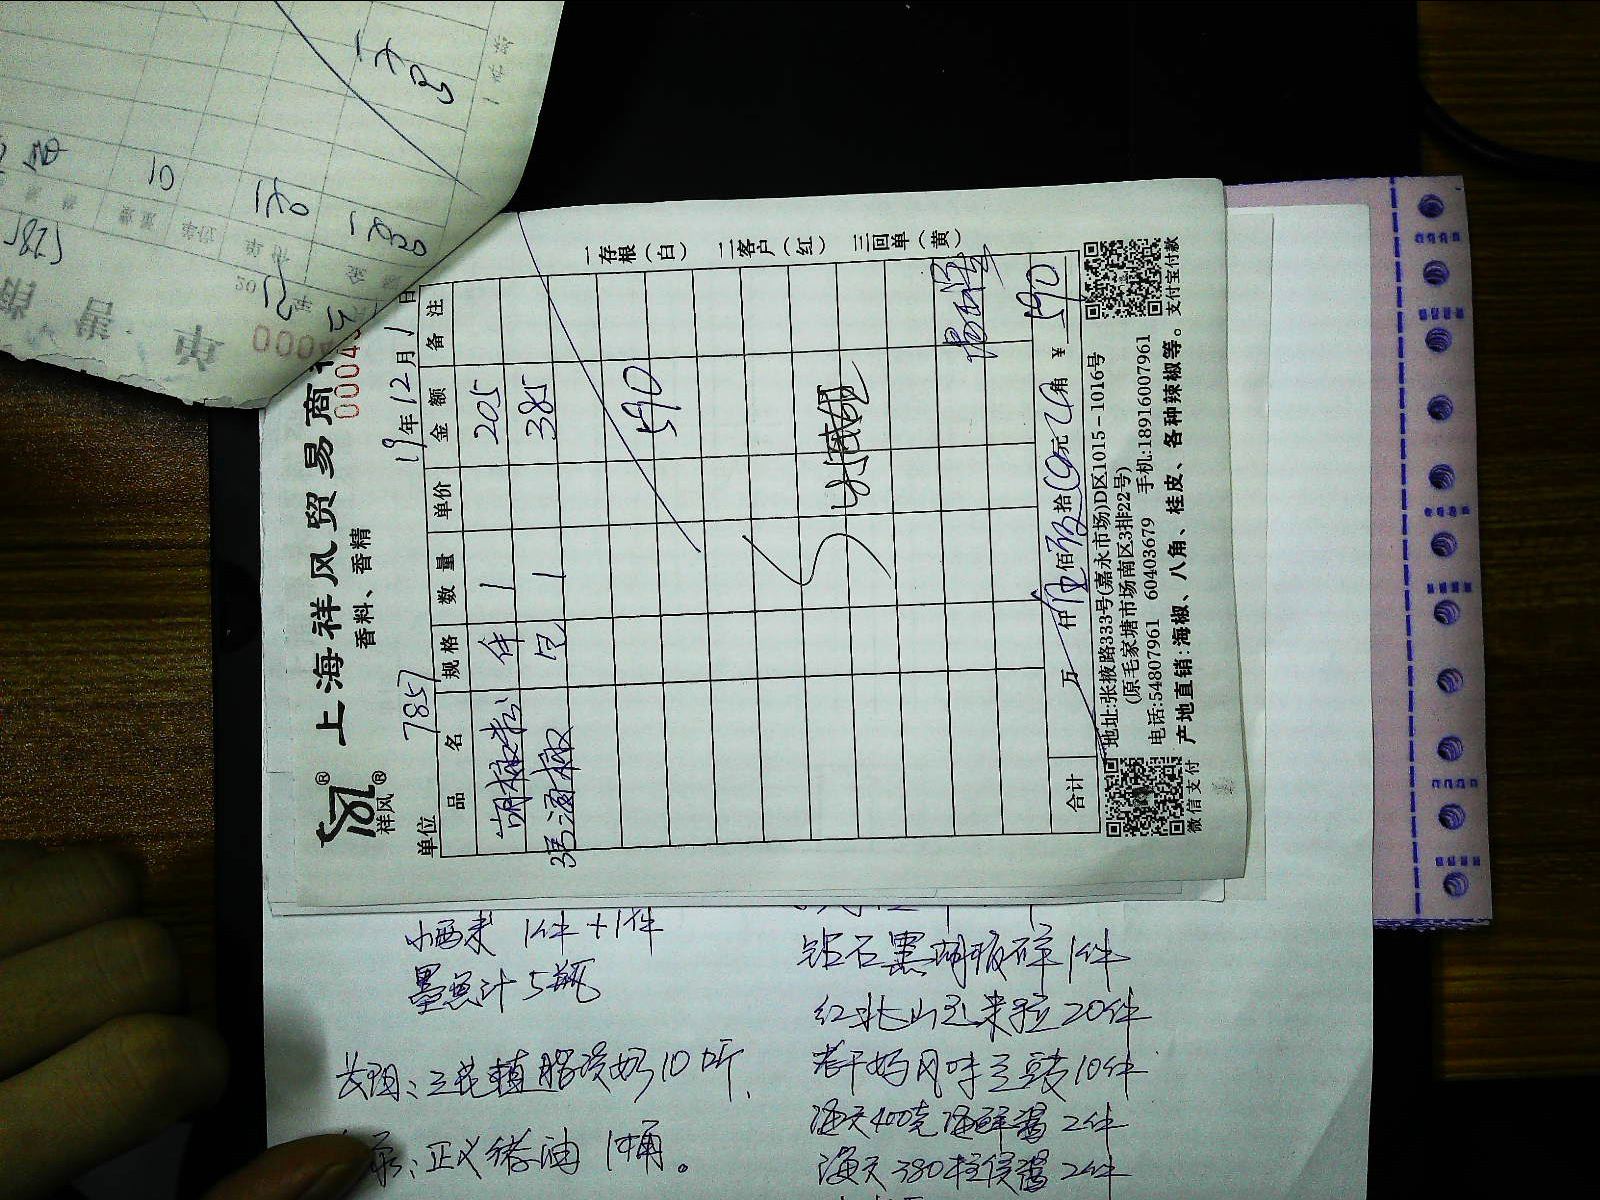 上海祥风贸易商
香料、香精
祥风
00004
单位 7857
19年12月1日
品名 规格 数量 单价 金额 备注
胡椒粉 件 1 205
3号海椒 包 1 385
590
合计 万 仟 伍佰玖拾0元0角 ¥590
一存根（白） 二客户（红） 三回单（黄）
地址:张掖路333号(嘉永市场)D区1015-1016号
(原毛家塘市场南区3排22号)
电话:54807961 60403679 手机:18916007961
产地直销:海椒、八角、桂皮、各种辣椒等。
微信支付
支付宝付款
小西米 1件+1件
墨鱼汁5瓶
三花植脂淡奶10听
正义猪油 1桶。
钻石黑胡椒碎1件
玉米粒20件
老干妈风味豆豉10件
海天400克海鲜酱2件
海天380柱侯酱2件
售单